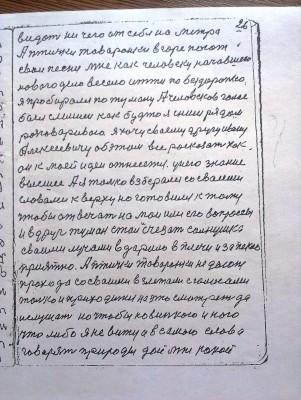 26
видат ни чего от себя на метра
А птички товарочки в горе поют
свои песни мне как человеку начавшего
новое дело весело итти по бездорожю,
я пробирался по туману А человеков голос
был слышен как будто я с ним рядом
розговариваю я хочу своему другу ивану
Алексеевичу об этом все росказать как
он к моей идеи отнесетц у него знание
высшее А я только взберался со своеми
словами к верху но готовился к тому
чтобы отвечать на мои или его вопросы
и вдруг туман стал счезат солнушко
своими лучами вдарило в плечи и запекло
приятно. А птички товарочки не далоко
прохода со своими взлетами с голосами
толко и приходится на это смотреть да
и слушат но чтобы ково ни ково и ного
что либо я не вижу а в самою слова
говорят природы дой мне какой